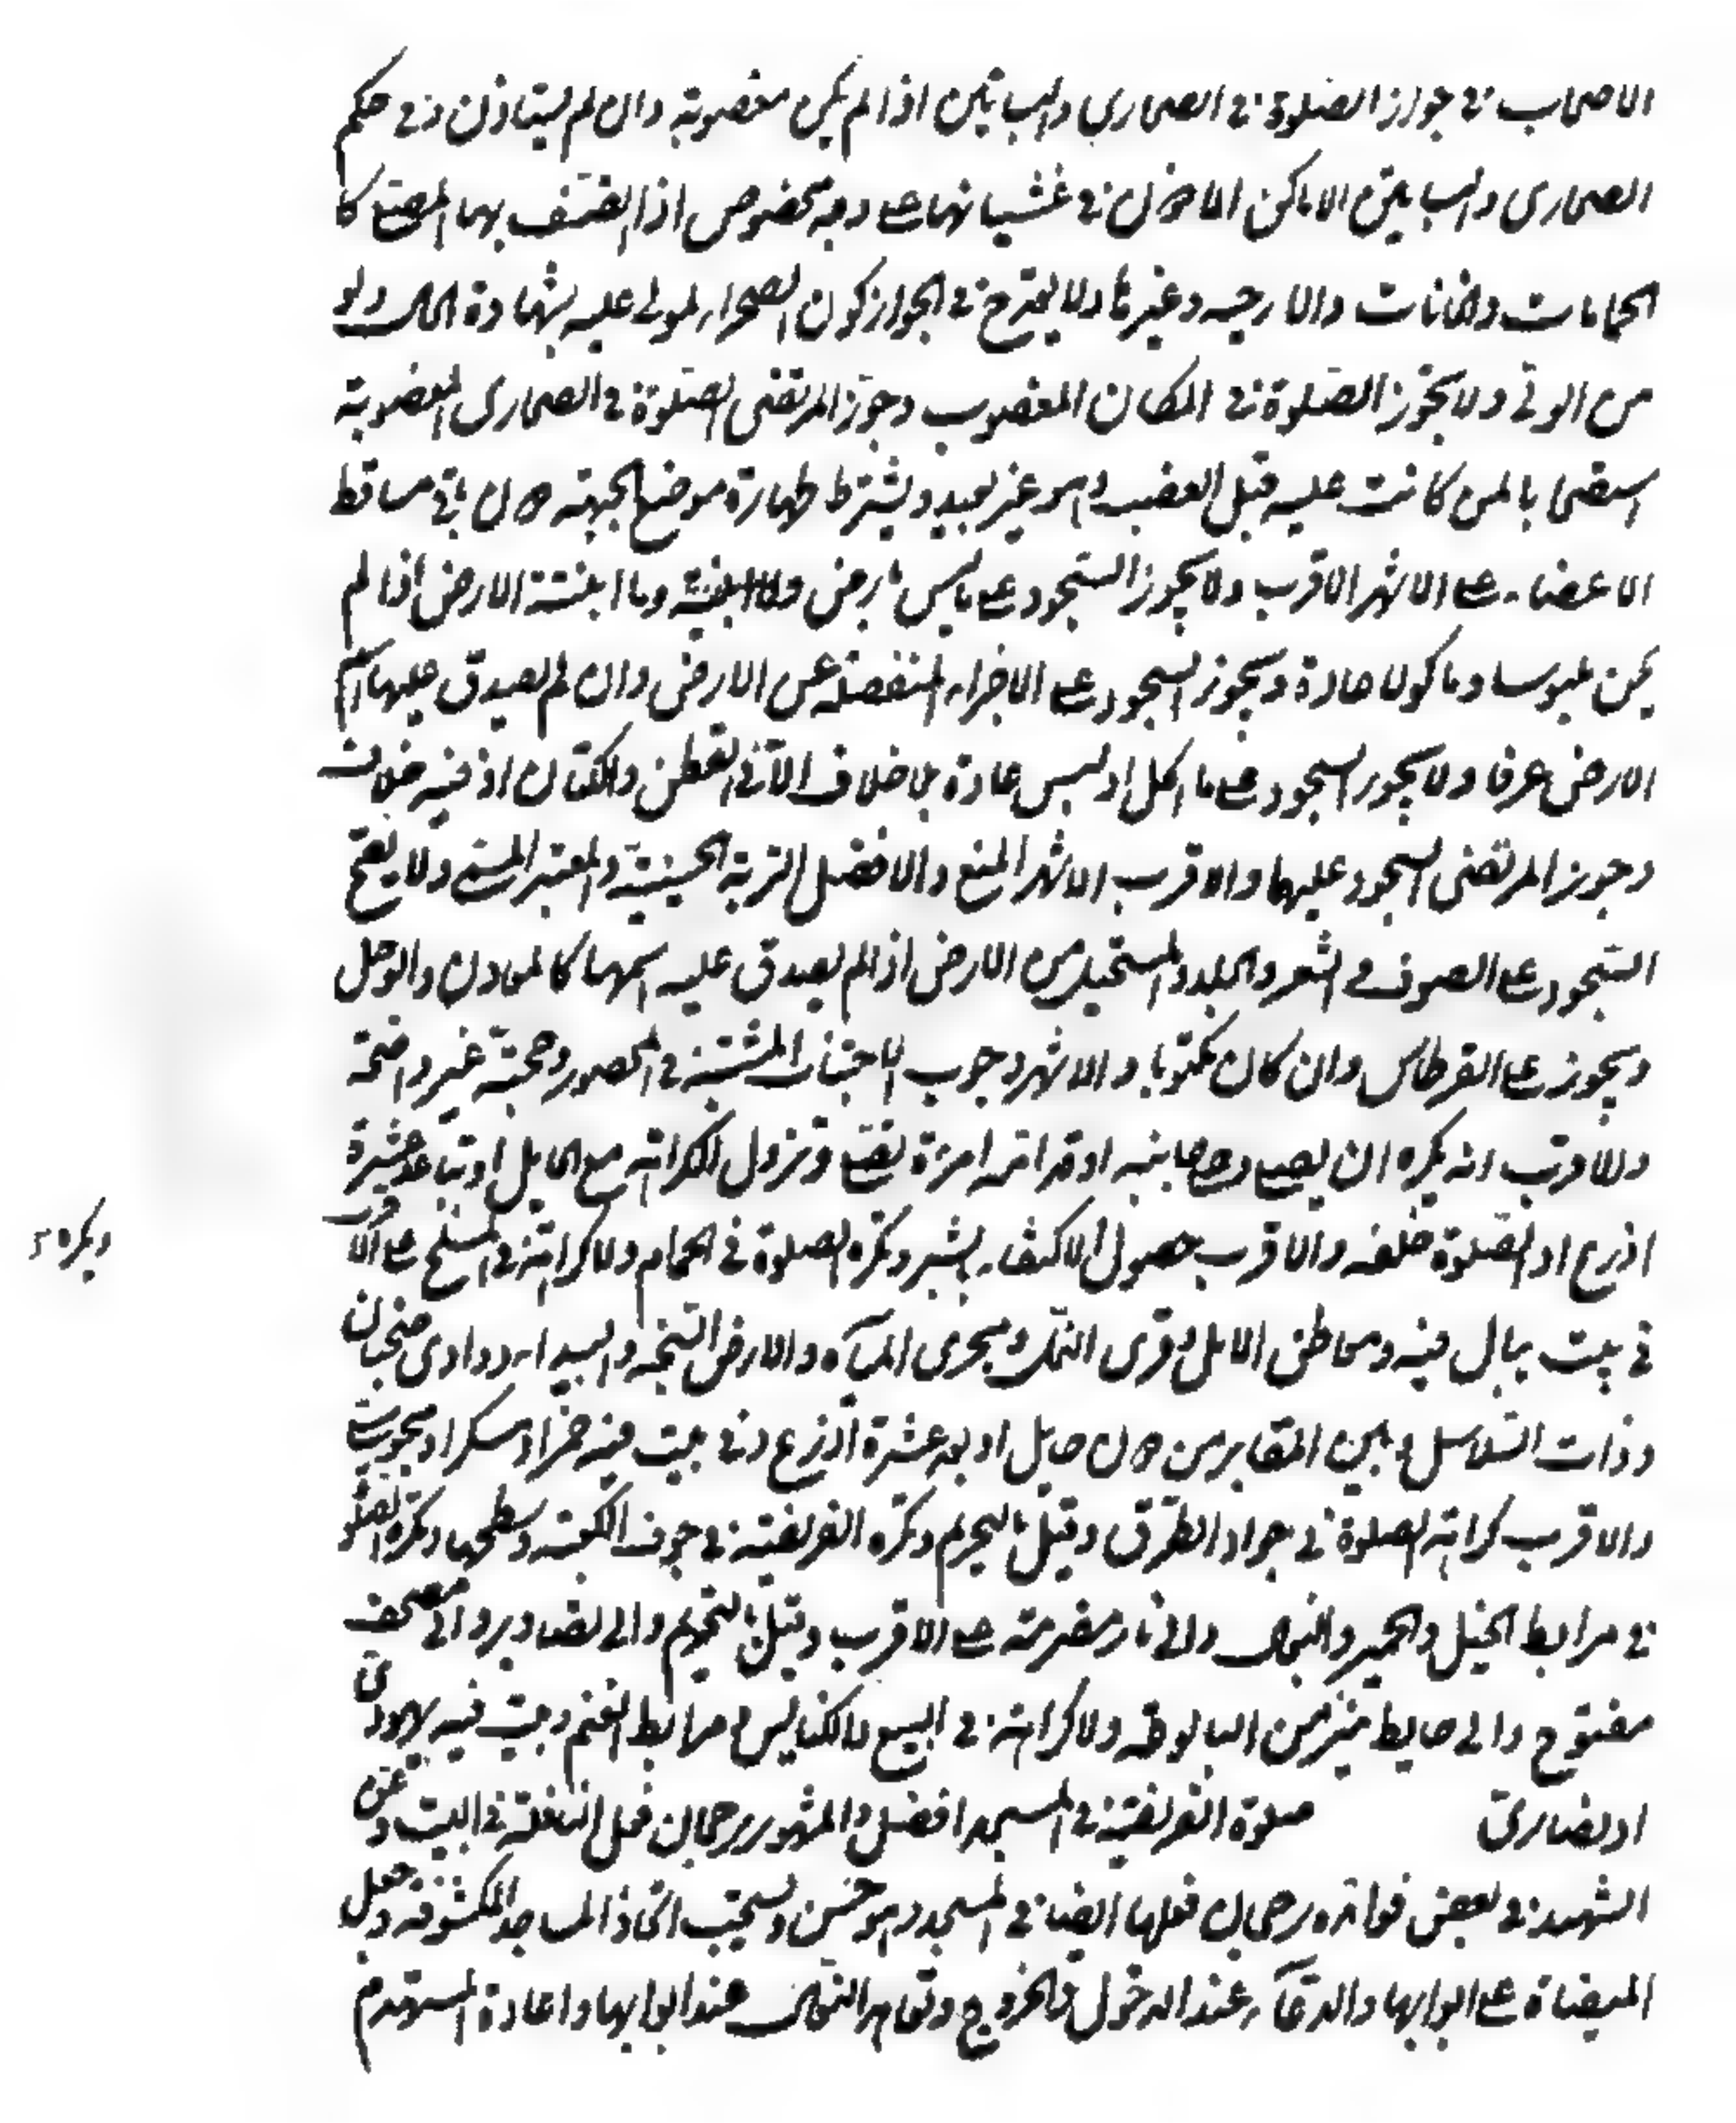 الاصحاب في جواز الصلوة في الصحاري والبساتين اذا لم يكن مغصوبة وان لم يستاذن وفي حكم
الصحاري والبساتين الاماكن الماذون في غشيانها على وجه مخصوص اذا اتصف بها المصلي كا
الحمامات والخانات والارحيه وغيرها ولا يقدح في الجواز كون الصحراء لمولى عليه بشهادة الحال ولو
من الولي ولا يجوز الصلوة في المكان المغصوب وجوز المرتضى الصلوة في الصحاري المغصوبة
استصحابا لمن كانت عليه قبل الغصب وهو غير بعيد ويشترط طهارة موضع الجبهة دون باقي مساقط
الاعضاء على الاشهر الاقرب ولا يجوز السجود على ما ليس بارض وما انبتته الارض اذا لم
يكن ملبوسا وماكولا عادة ويجوز السجود على الاجزاء المنفصلة عن الارض وان لم يصدق عليها اسم
الارض عرفا ولا يجوز السجود على ما اكل او لبس عادة بلا خلاف الا في القطن والكتان اذ فيه خلاف
وجوز المرتضى السجود عليهما والاقرب الاشهر المنع والافضل التربة الحسينية والمعتبر المسمى ولا يصح
السجود على الصوف والشعر والجلد والمستحيل من الارض اذا لم يصدق عليه اسمها كالمعادن والوحل
ويجوز على القرطاس وان كان مكتوبا والاشهر وجوب اجتناب المشتبه في المحصور وحجته غير واضحة
والاقرب انه يكره ان يصلي وبجانبه او قدامه امرءة تصلي وتزول الكراهة مع الحايل او تباعد عشرة
اذرع او الصلوة خلفه والاقرب حصول الاكتفاء بشبر وتكره الصلوة في الحمام ولا كراهة في المسلخ على الاقرب
ويكره
في بيت يبال فيه ومعاطن الابل وقرى النمل ومجرى المآء والارض السبخة والبيداء ووادى ضجنان
وذات السلاسل وبين المقابر من دون حايل او بعد عشرة اذرع وفي بيت فيه خمر او مسكر او مجوسي
والاقرب كراهة الصلوة في جواد الطرق وقيل بالتحريم وتكره الفريضة في جوف الكعبة وسطحها وتكره الصلوة
في مرابط الخيل والحمير والبغال والى نار مضرمة على الاقرب وقيل بالتحريم والى تصاوير والى مصحف
مفتوح والى حايط ينز من البالوعة ولا كراهة في البيع والكنايس ومرابط الغنم وبيت فيه يهودي
او نصارى صلوة الفريضة في المسجد افضل والمشهور رجحان فعل النافلة في البيت وعن
الشهيد في بعض فوائده رجحان فعلها ايضا في المسجد وهو حسن ويستحب اتخاذ المساجد المكشوفة وجعل
الميضاة على ابوابها والدعآء عند الدخول والخروج وتعاهد النعال عند ابوابها واعادة المستهدم